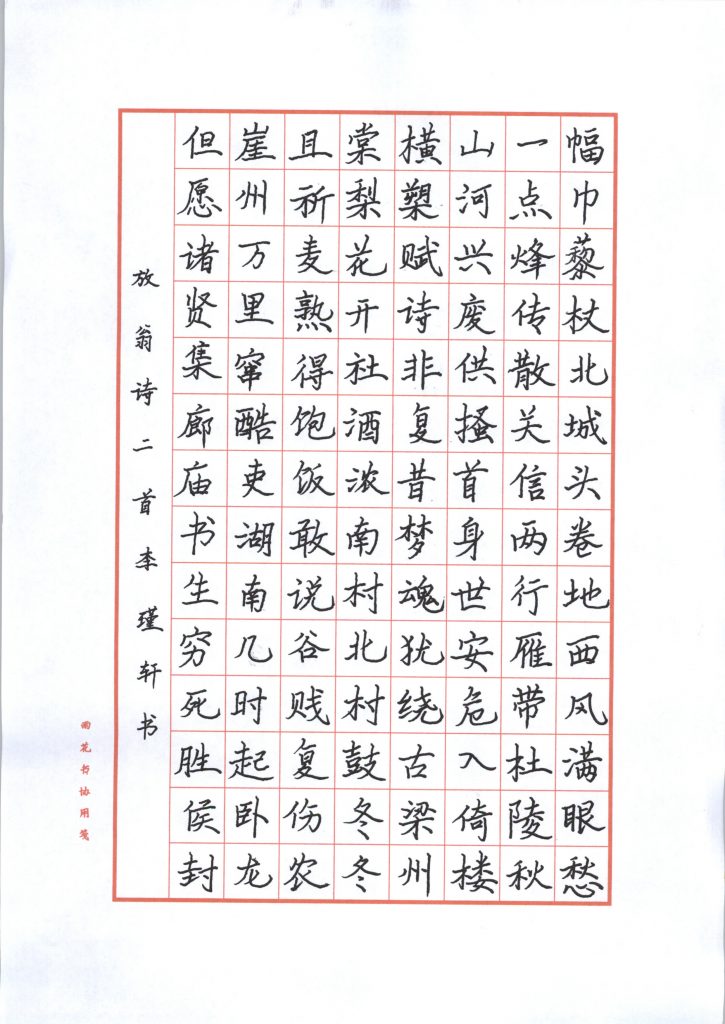 幅巾藜杖北城头卷地西风满眼愁
一点烽传散关信两行雁带杜陵秋
山河兴废供搔首身世安危入倚楼
横槊赋诗非复昔梦魂犹绕古梁州
棠梨花开社酒浓南村北村鼓冬冬
且祈麦熟得饱饭敢说谷贱复伤农
崖州万里窜酷吏湖南几时起卧龙
但愿诸贤集廊庙书生穷死胜侯封
放翁诗二首李瑾轩书
雨花书协用笺